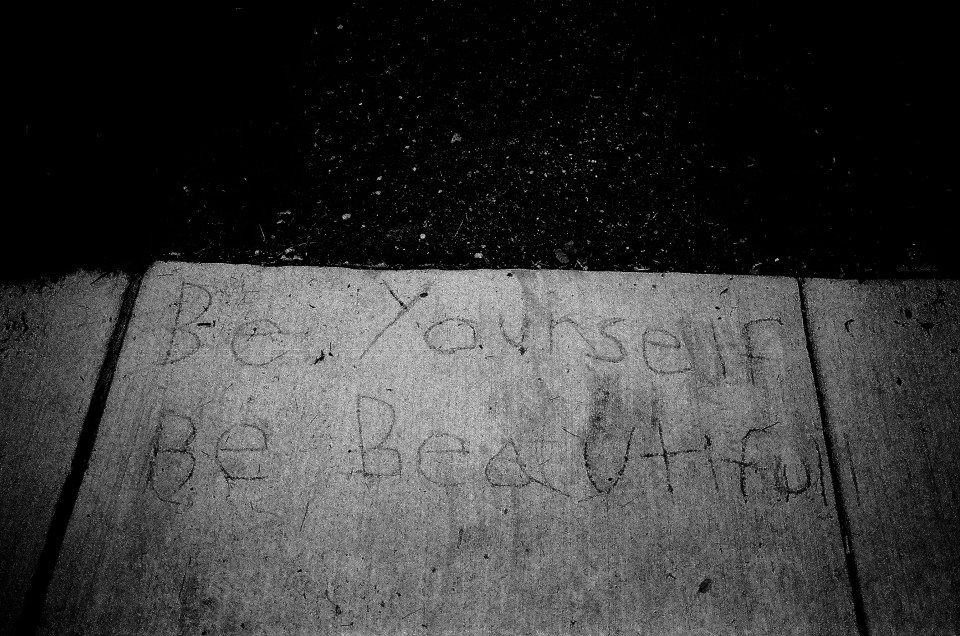 Be Yourself
Be Beautiful